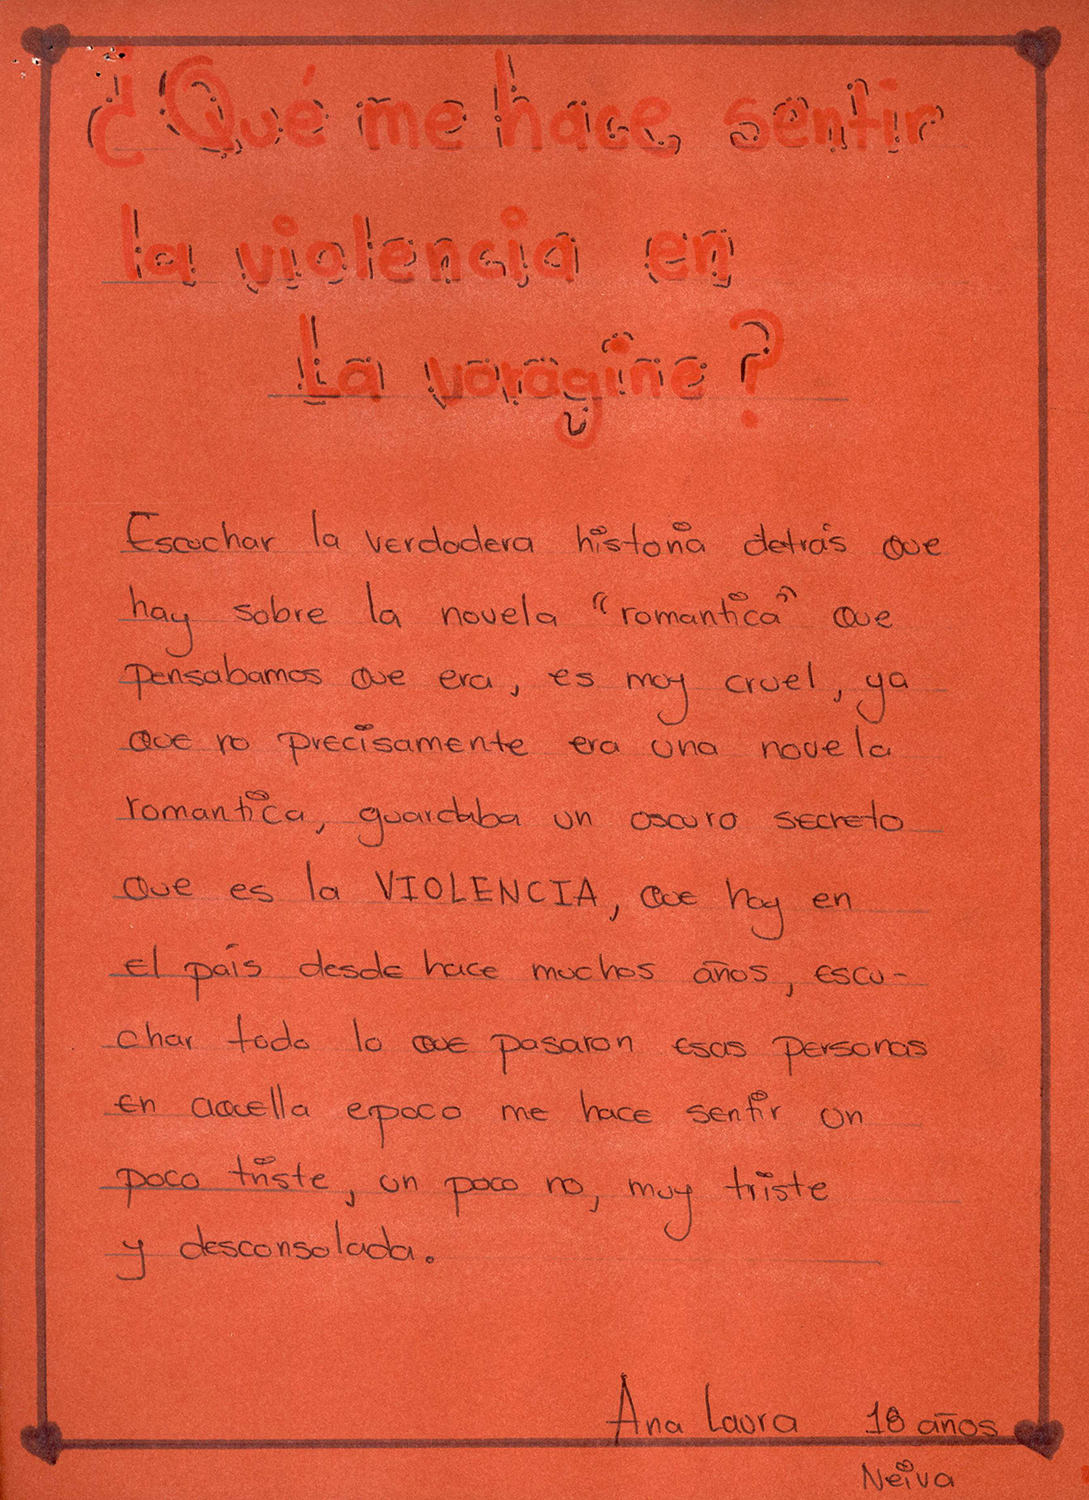 ¿Qué me hace sentir
la violencia en
La vorágine?
Escuchar la verdadera historia detrás que
hay sobre la novela "romantica" que
pensabamos que era, es muy cruel, ya
que no precisamente era una novela
romantica, guardaba un oscuro secreto
que es la VIOLENCIA, que hay en
el país desde hace muchos años, escu-
char todo lo que pasaron esas personas
en aquella epoca me hace sentir un
poco triste, un poco no, muy triste
y desconsolada.
Ana Laura 18 años
Neiva